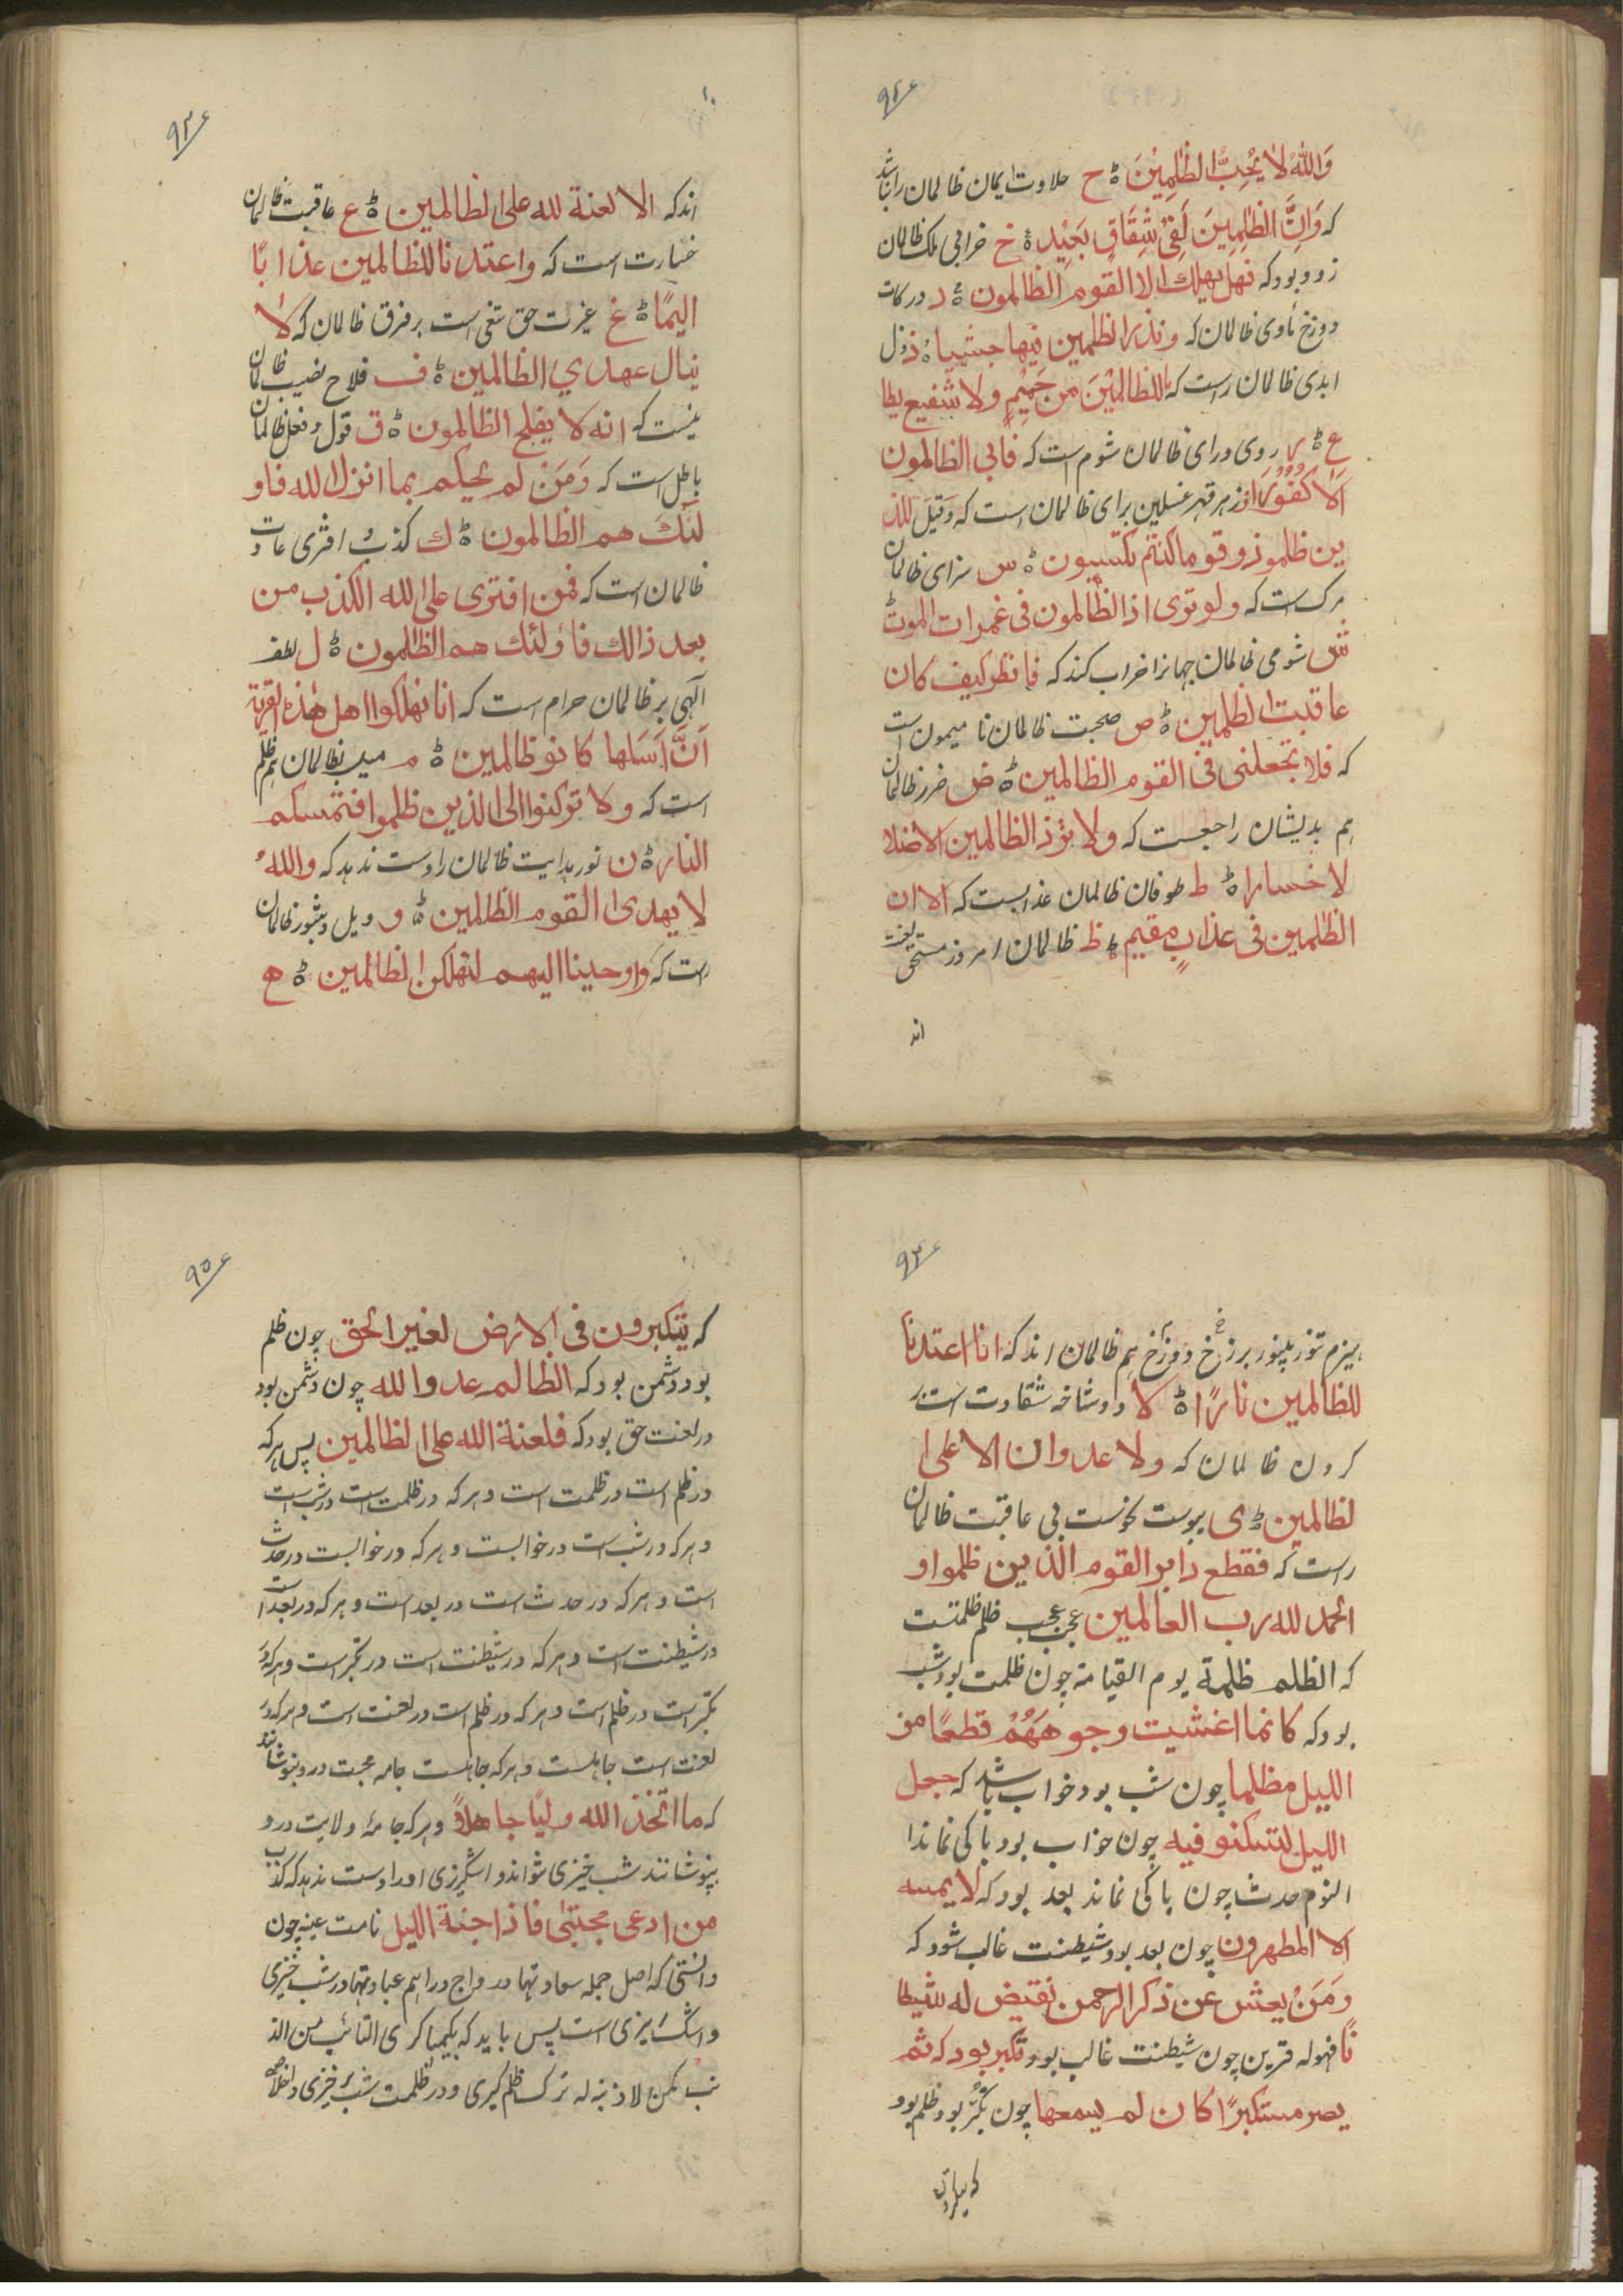 ۹۲
وَاللهُ لَا يُحِبُّ الظّٰلِمِيْنَ ۀ ح حلاوت ایمان ظالمان را نباشد
که وَاِنَّ الظّٰلِمِينَ لَفِىْ شِقَاقٍ بَعِيْدٍ ۀ خ خرابی ملک ظالمان
زود بود که فهل يهلك الا القوم الظالمون ۀ د درکات
دوزخ ماوی ظالمان که ونذر الظلمين فيها جثيا ۀ ذ ذل
ابدی ظالمان راست که ما للظالمين من حَمِيْمٍ ولا شفيع يطا
ع ۀ ر روی و رای ظالمان شوم است که فابى الظالمون
اِلَّا كُفُوْرًا ز زهر قهر غسلین برای ظالمان است که وَقِيْلَ للذ
ين ظلمو ذوقو ما كنتم تكسبون ۀ س سزای ظالمان
مرگ است که ولو ترى اذ الظالمون فى غمرات الموت ۀ
ش شومی ظالمان جهانرا خراب کند که فانظر كيف كان
عاقبت الظلمين ۀ ص صحبت ظالمان نامیمون است
که فلا تجعلنى فى القوم الظالمين ۀ ض ضرر ظالمان
هم بدیشان راجعست که ولا تزد الظالمين الا ضلا
لا خسارا ۀ ط طوفان ظالمان عذابست که الا ان
الظّٰلمين فى عذابٍ مقيم ۀ ظ ظالمان امروز مستحق لعنت
اند
۹۳
اند که الا لعنة لله على الظالمين ۀ ع عاقبت ظالمان
خسارت است که واعتدنا للظالمين عذابًا
اليمًا ۀ غ غیرت حق تیغی است بر فرق ظالمان که لا
ينال عهدي الظالمين ۀ ف فلاح نصیب ظالمان
نیست که انه لا يفلح الظالمون ۀ ق قول و فعل ظالمان
باطل است که وَمَنْ لم يحكم بما انزل الله فاو
لٰئك هم الظالمون ۀ ك کذب و افتری عادت
ظالمان است که فمن افترى على الله الكذب من
بعد ذالك فاولئك هم الظلمون ۀ ل لطف
الٰهی بر ظالمان حرام است که انا مهلكوا اهل هٰذه القرية
اَنَّ اَهلها كانو ظالمين ۀ م میل بظالمان هم ظلم
است که ولا تركنوا الى الذين ظلموا فتمسكم
النار ۀ ن نور هدایت ظالمان را دست ندهد که واللهُ
لا يهدى القوم الظالمين ۀ و ویل و ثبور ظالمان
راست که واوحينا اليهم لنهلكن الظالمين ۀ ه
۹۴
هیزم تنور برزخ و دوزخ هم ظالمان اند که انا اعتدنا
للظالمين نارًا ۀ لا دوشاخه شقاوت است در
گردن ظالمان که ولا عدوان الا على ا
لظالمين ۀ ى یبوست نحوست بی عاقبت ظالمان
راست که فقطع دابر القوم الذين ظلموا و
الحمد لله رب العالمين عجب عجب ظلم ظلمتست
که الظلم ظلمة يوم القيامة چون ظلمت بود شب
بود که كانما اغشيت وجوههُمْ قطعًا من
الليل مظلما چون شب بود خواب باشد که جعل
الليل لتسكنو فيه چون خواب بود پاکی نماند ا
النوم حدث چون پاکی نماند بعد بود که لا يمسه
الا المطهرون چون بعد بود شیطنت غالب شود که
ومَنْ يعش عن ذكر الرحمن نقيض له شيطا
نًا فهوله قرين چون شیطنت غالب بود تکبر بود که ثم
يصر مستكبرًا كان لم يسمعها چون تکبر بود ظلم بود
۹۵
که يتكبرون فى الارض لغير الحق چون ظلم
بود دشمن بود که الظالم عدو الله چون دشمن بود
در لعنت حق بود که فلعنة الله على الظالمين پس هر که
در ظلم است در ظلمت است و هر که در ظلمت است در شب است
و هر که در شب است در خوابست و هر که در خوابست در حدث
است و هر که در حدث است در بعد است و هر که در بعد است
در شیطنت است و هر که در شیطنت است در تکبر است و هر که در
تکبر است در ظلم است و هر که در ظلم است در لعنت است و هر که در
لعنت است جاهلست و هر که جاهلست جامه محبت در و نپوشانند
که ما اتخذ الله وليًا جاهلاً و هر که جامۀ ولایت در و
نپوشانند شب خیزی نتواند و اشگریزی او را دست ندهد که كذب
من ادعى محبتى فاذا جنة الليل نامت عينه چون
دانستی که اصل جمله سعادتها و رواج و راهم عبادتها در شب خیزی
و اشگ‌ریزی است پس باید که بکیمیاگری التائب من الذ
نب كمن لا ذنبله ترک ظلم گیری و در ظلمت شب برخیزی و اخلاص